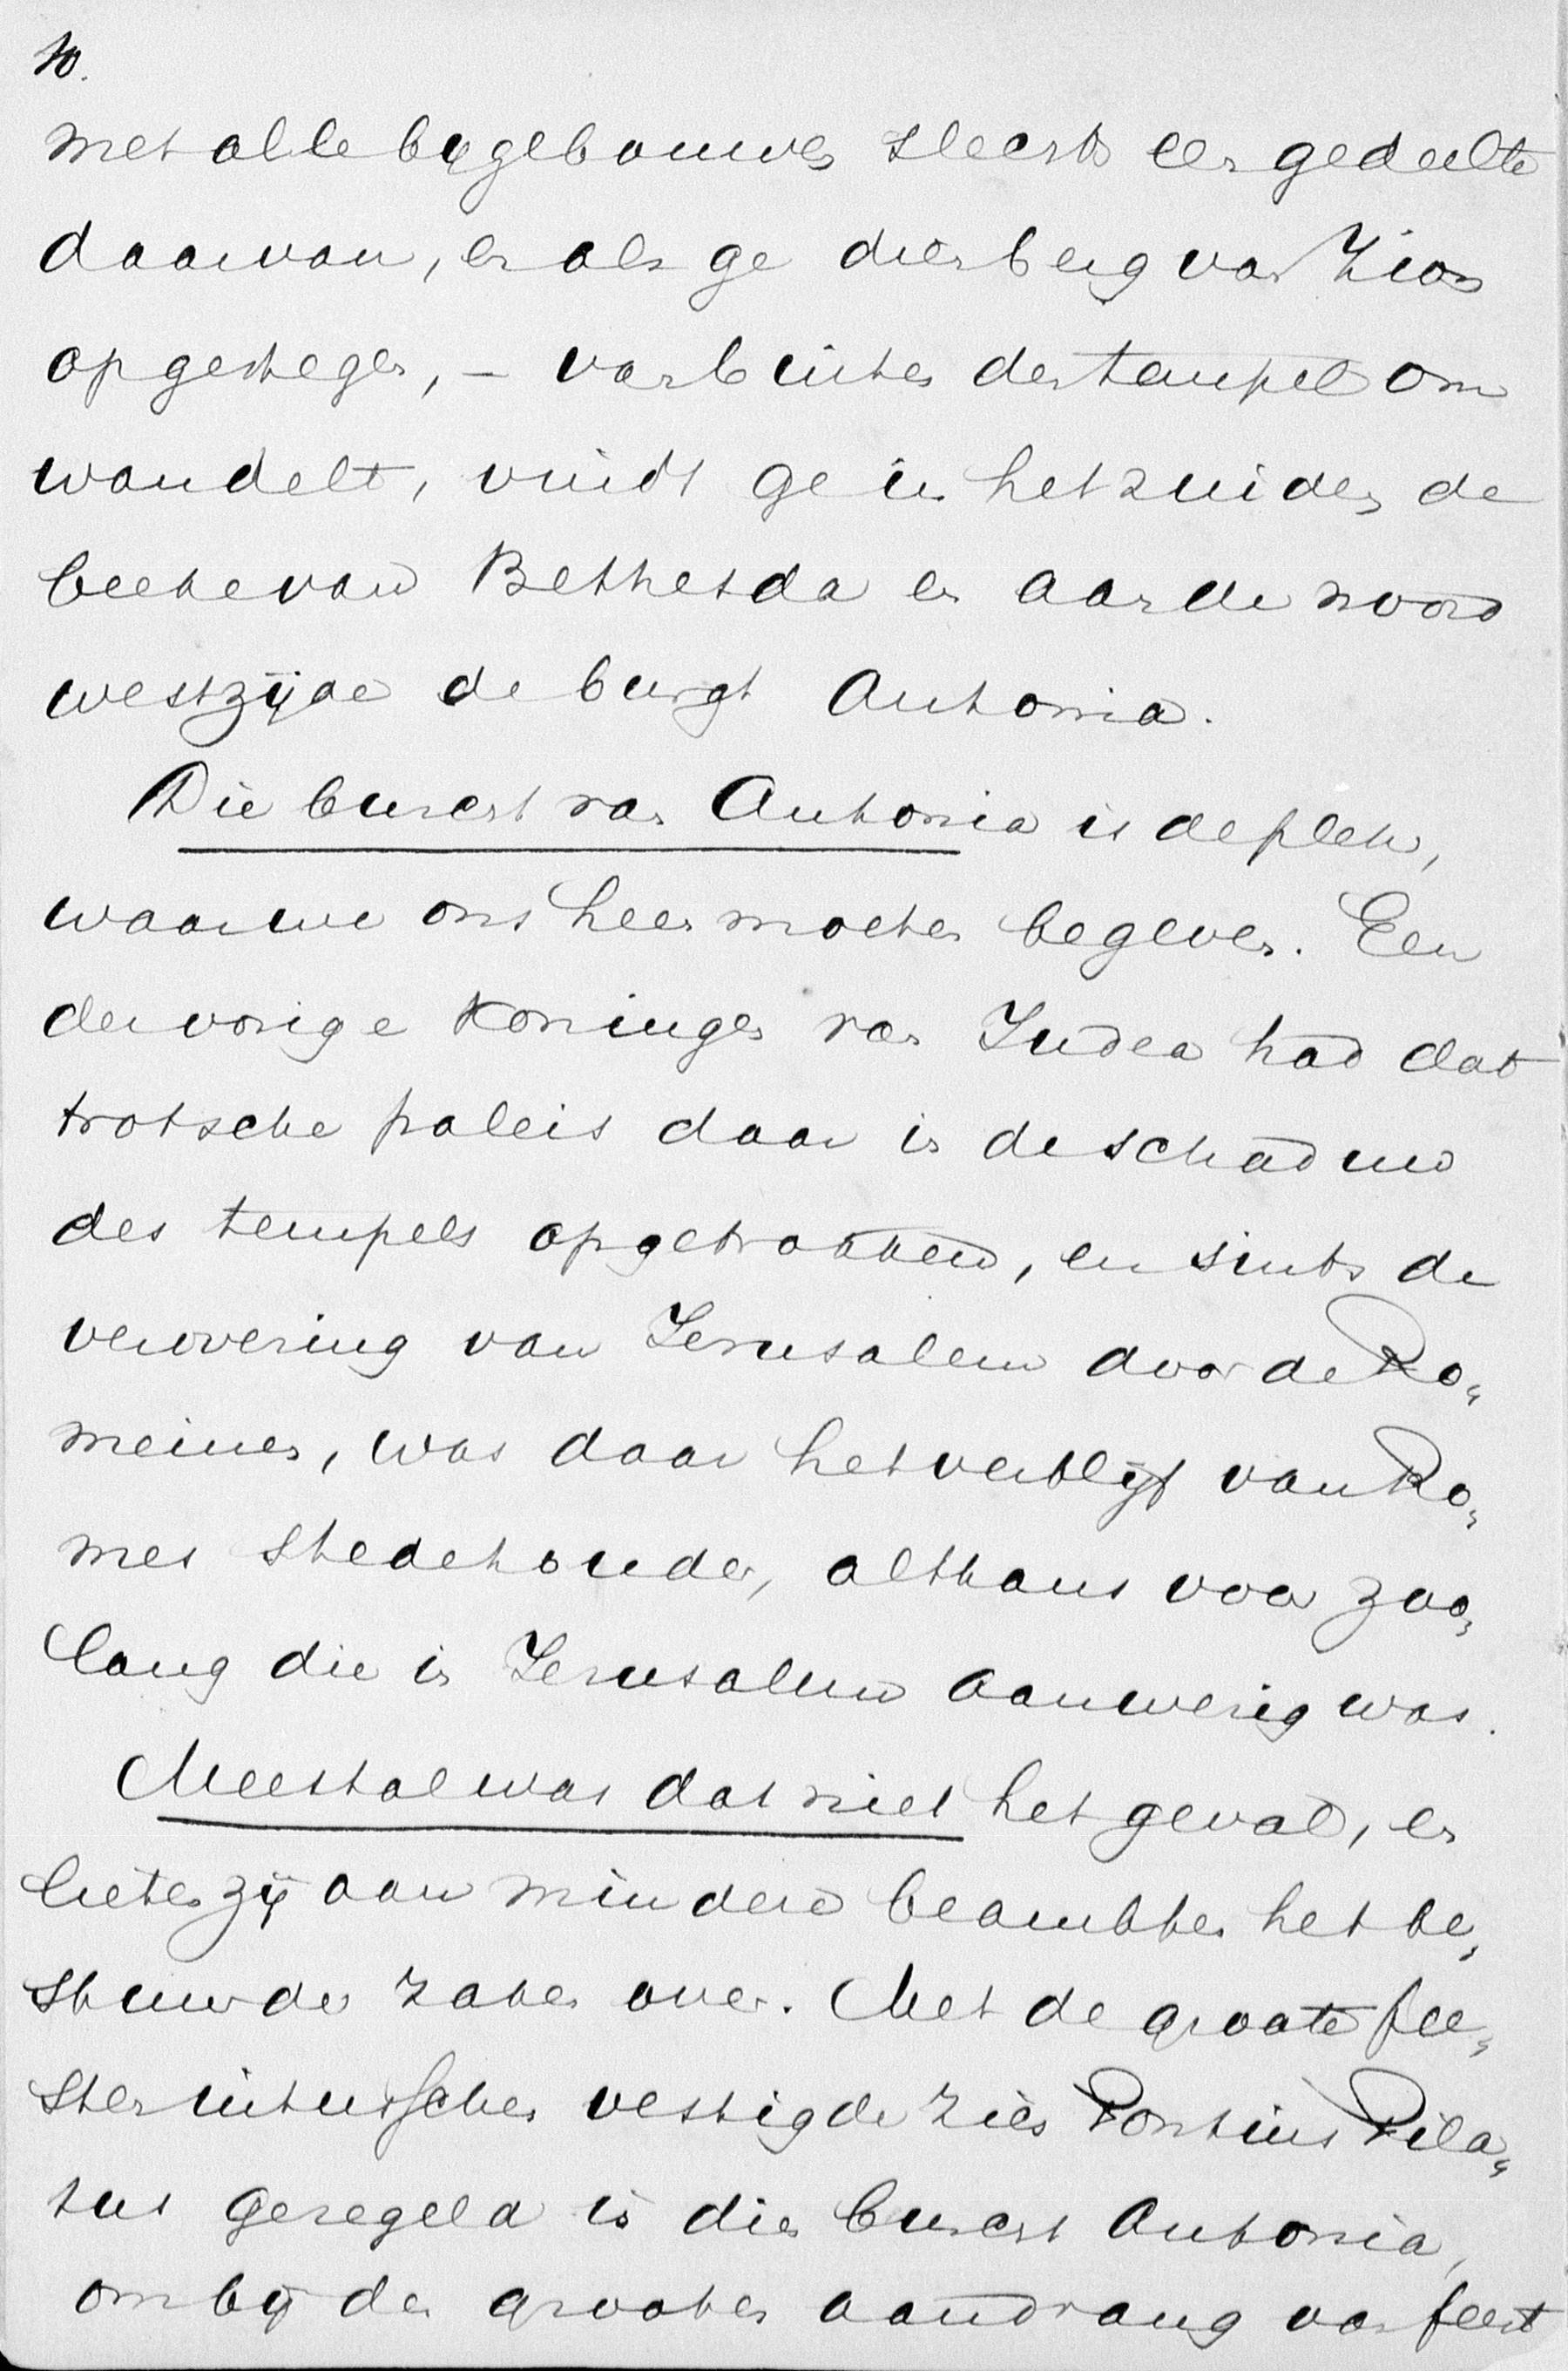 10.
met alle bijgebouwen slechts een gedeelte
daarvan, en als ge dien berg van Zion
opgestegen, – van buiten den tempel om
wandelt, vindt ge in het zuiden de
beek van Bethesda en aan de noord
westzijde de burgt Antonia.
Die burcht van Antonia is de plek,
waar we ons heen moeten begeven. Een
der vorige koningen van Judea had dat
trotsche paleis daar in de schaduw
des tempels opgetrokken, en sints de
verovering van Jerusalem door de Ro„
meinen, was daar het verblijf van Ro„
mes stedehouder, althans voor zoo„
lang die in Jerusalem aanwezig was.
Meestal was dat niet het geval, en
lieten zij aan mindere beambten het be„
stuur der zaken over. Met de groote fee„
sten intusschen vestigde zich Pontius Pila„
tus geregeld in dien burcht Antonia,
om bij den grooten aandrang van feest